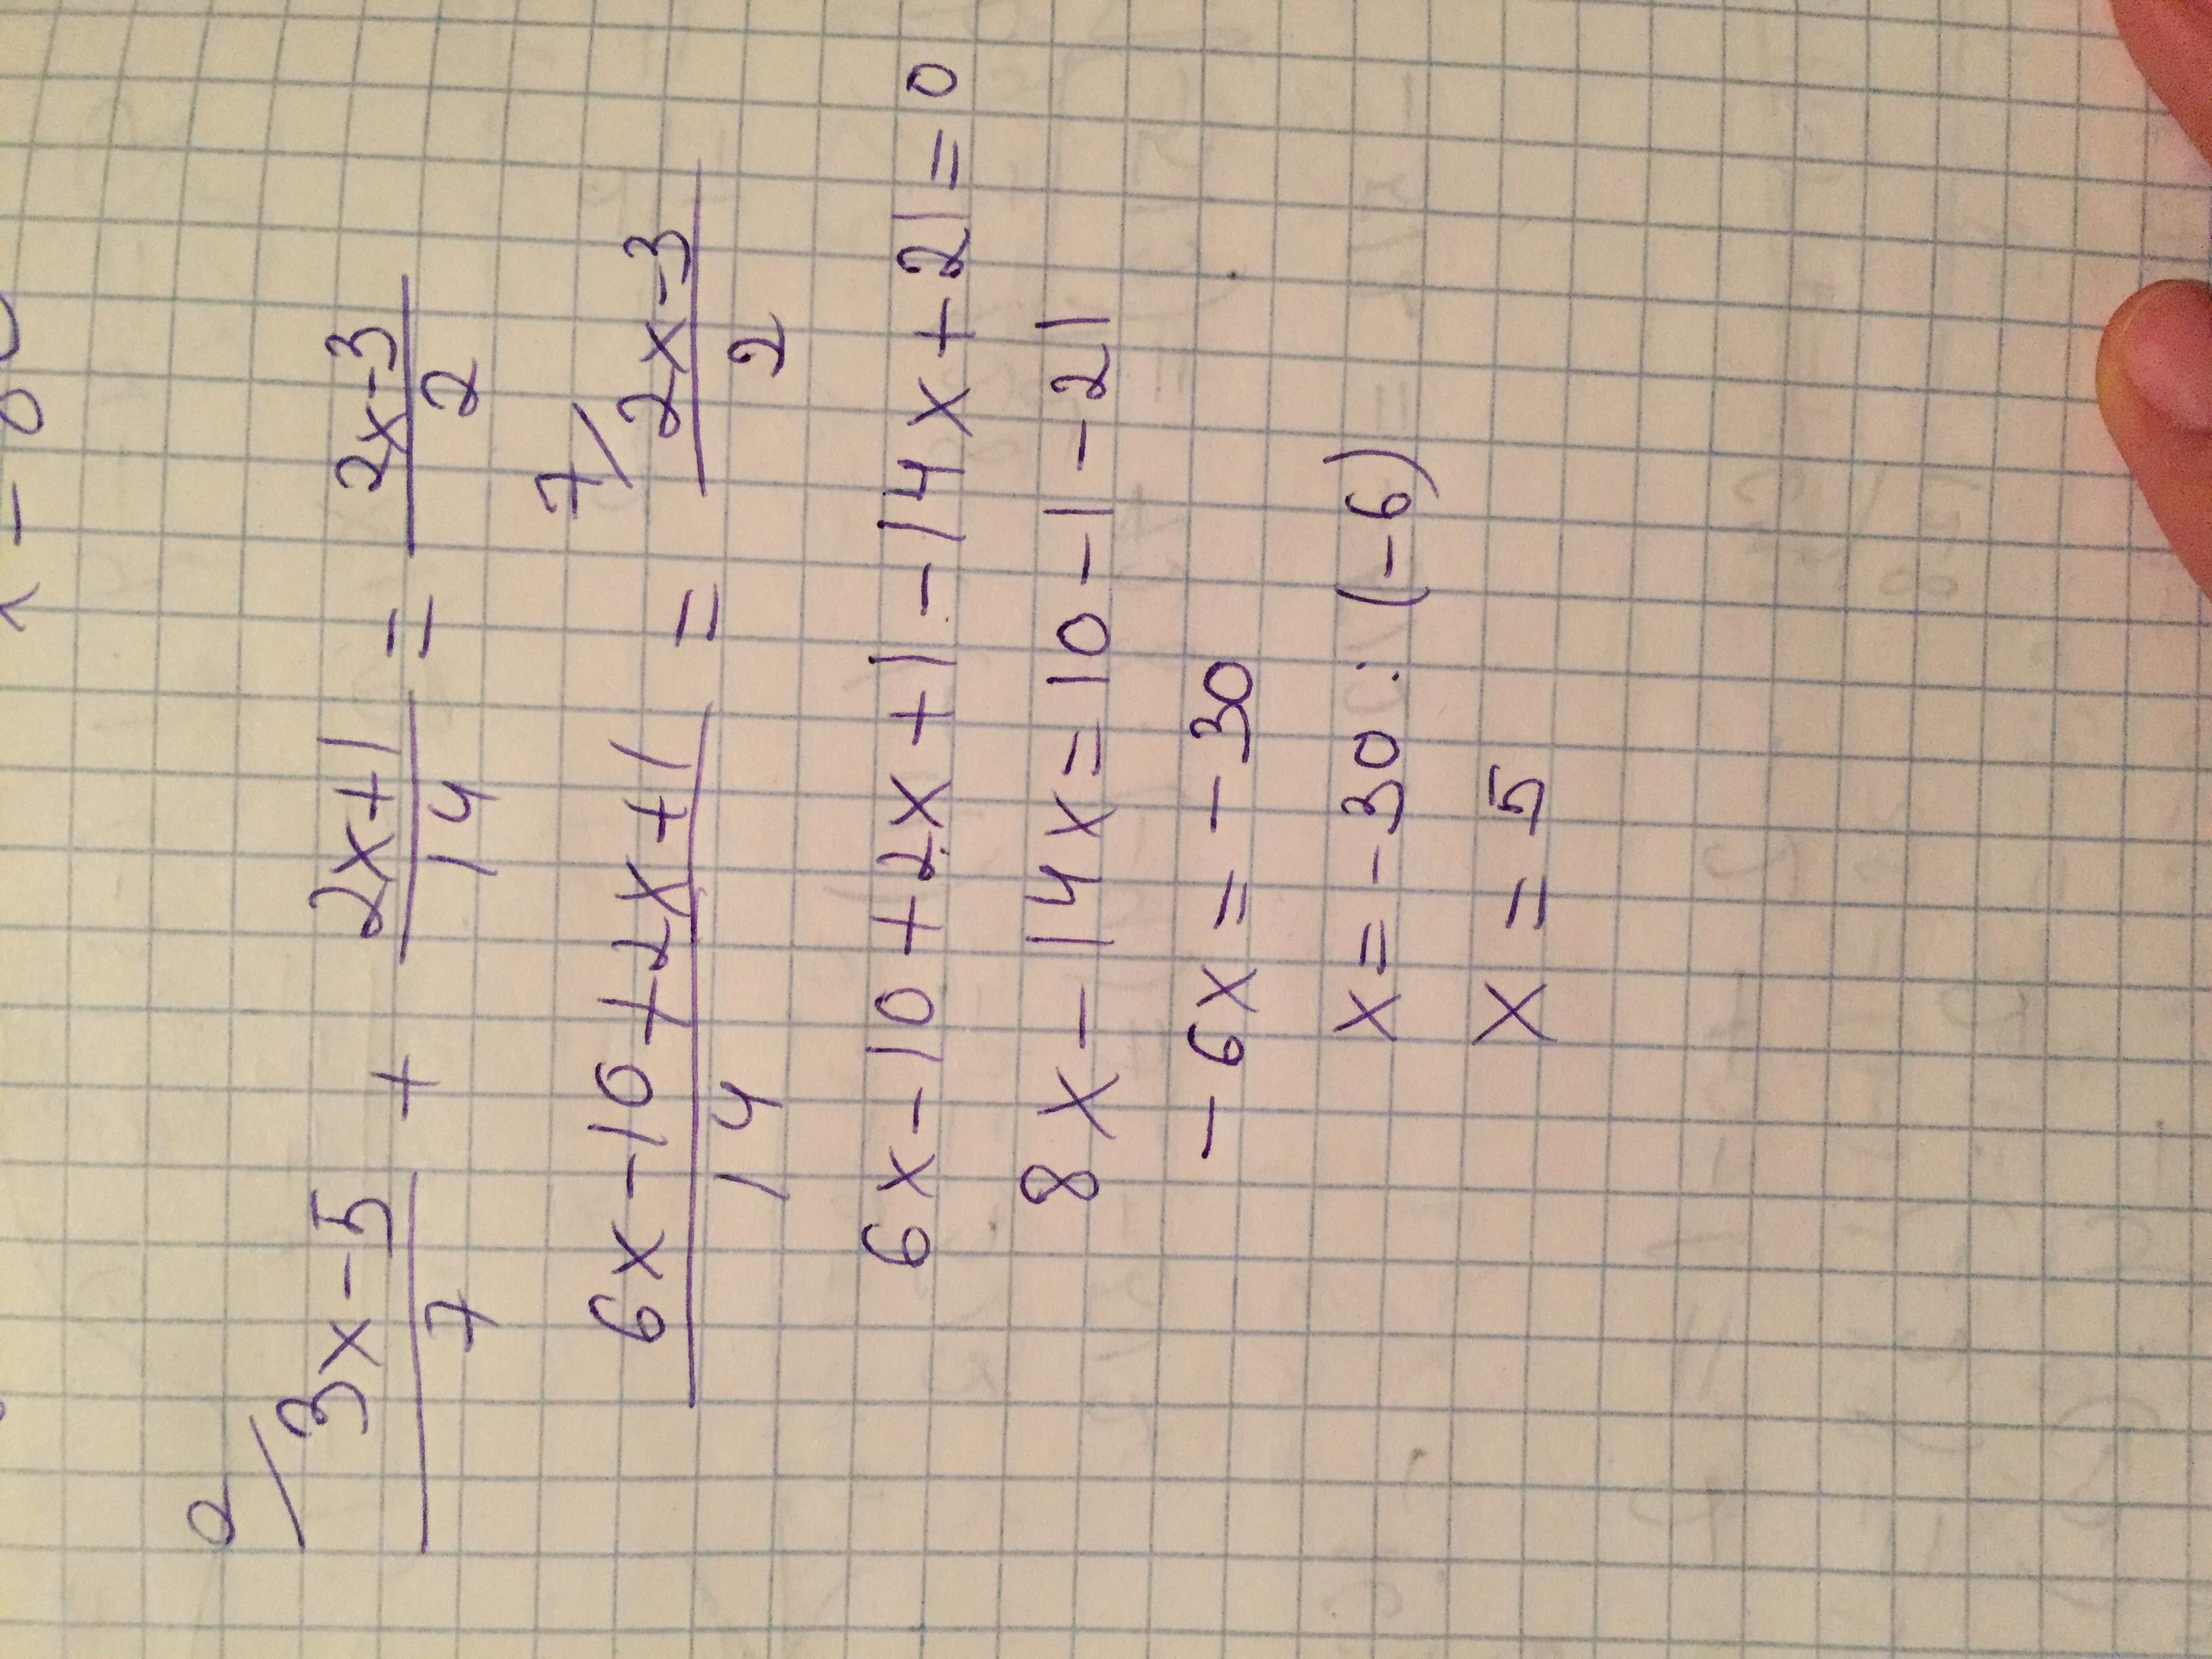 2/ 3x-5 / 7 + 2x+1 / 14 = 2x-3 / 2
6x-10+2x+1 / 14 = 7/ 2x-3 / 2
6x-10+2x+1-14x+21=0
8x-14x=10-1-21
-6x=-30
x=-30:(-6)
x=5